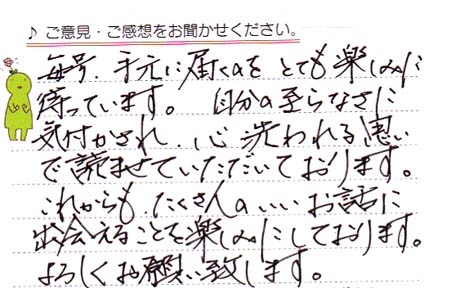 ♪ご意見・ご感想をお聞かせください。
毎号、手元に届くのをとても楽しみに
待っています。 自分の至らなさに
気付かされ、心洗われる思い
で読ませていただいております。
これからも、たくさんのいいお話に
出会えることを楽しみにしております。
よろしくお願い致します。